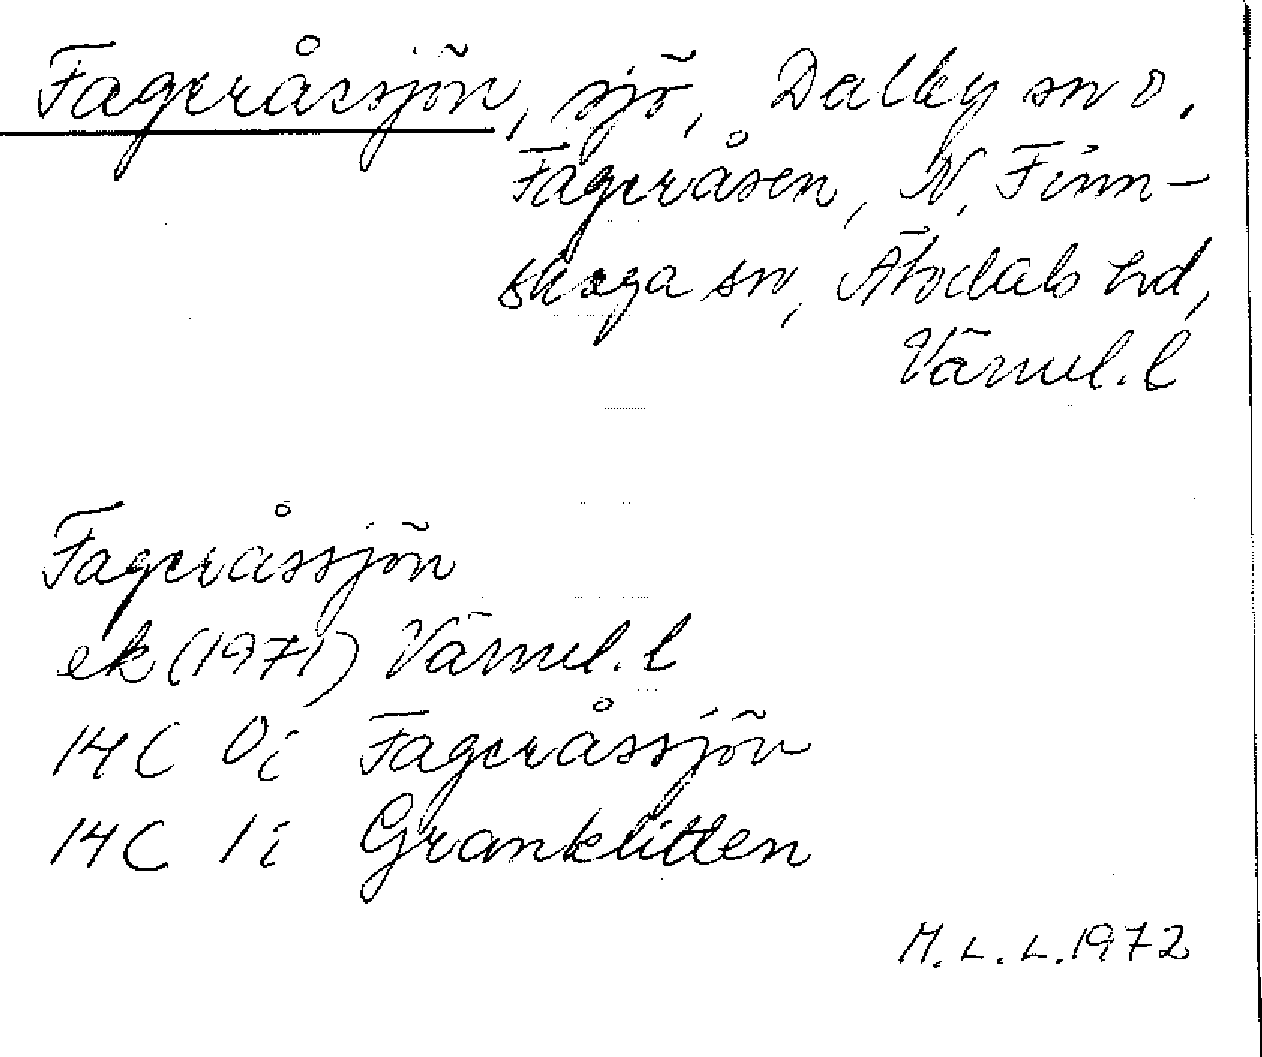 Fageråssjön, sjö, Dalby sn o.
Fageråsen, N. Finn-
skoga sn, Älvdals hd,
Värml. l
Fageråssjön
ek (1971) Värml. l
14C 0i Fageråssjön
14C 1i Granklitten
M.L.L. 1972